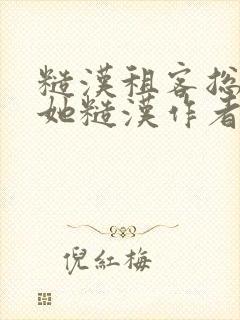 糙漢租客总
她糙漢作者
倪紅梅